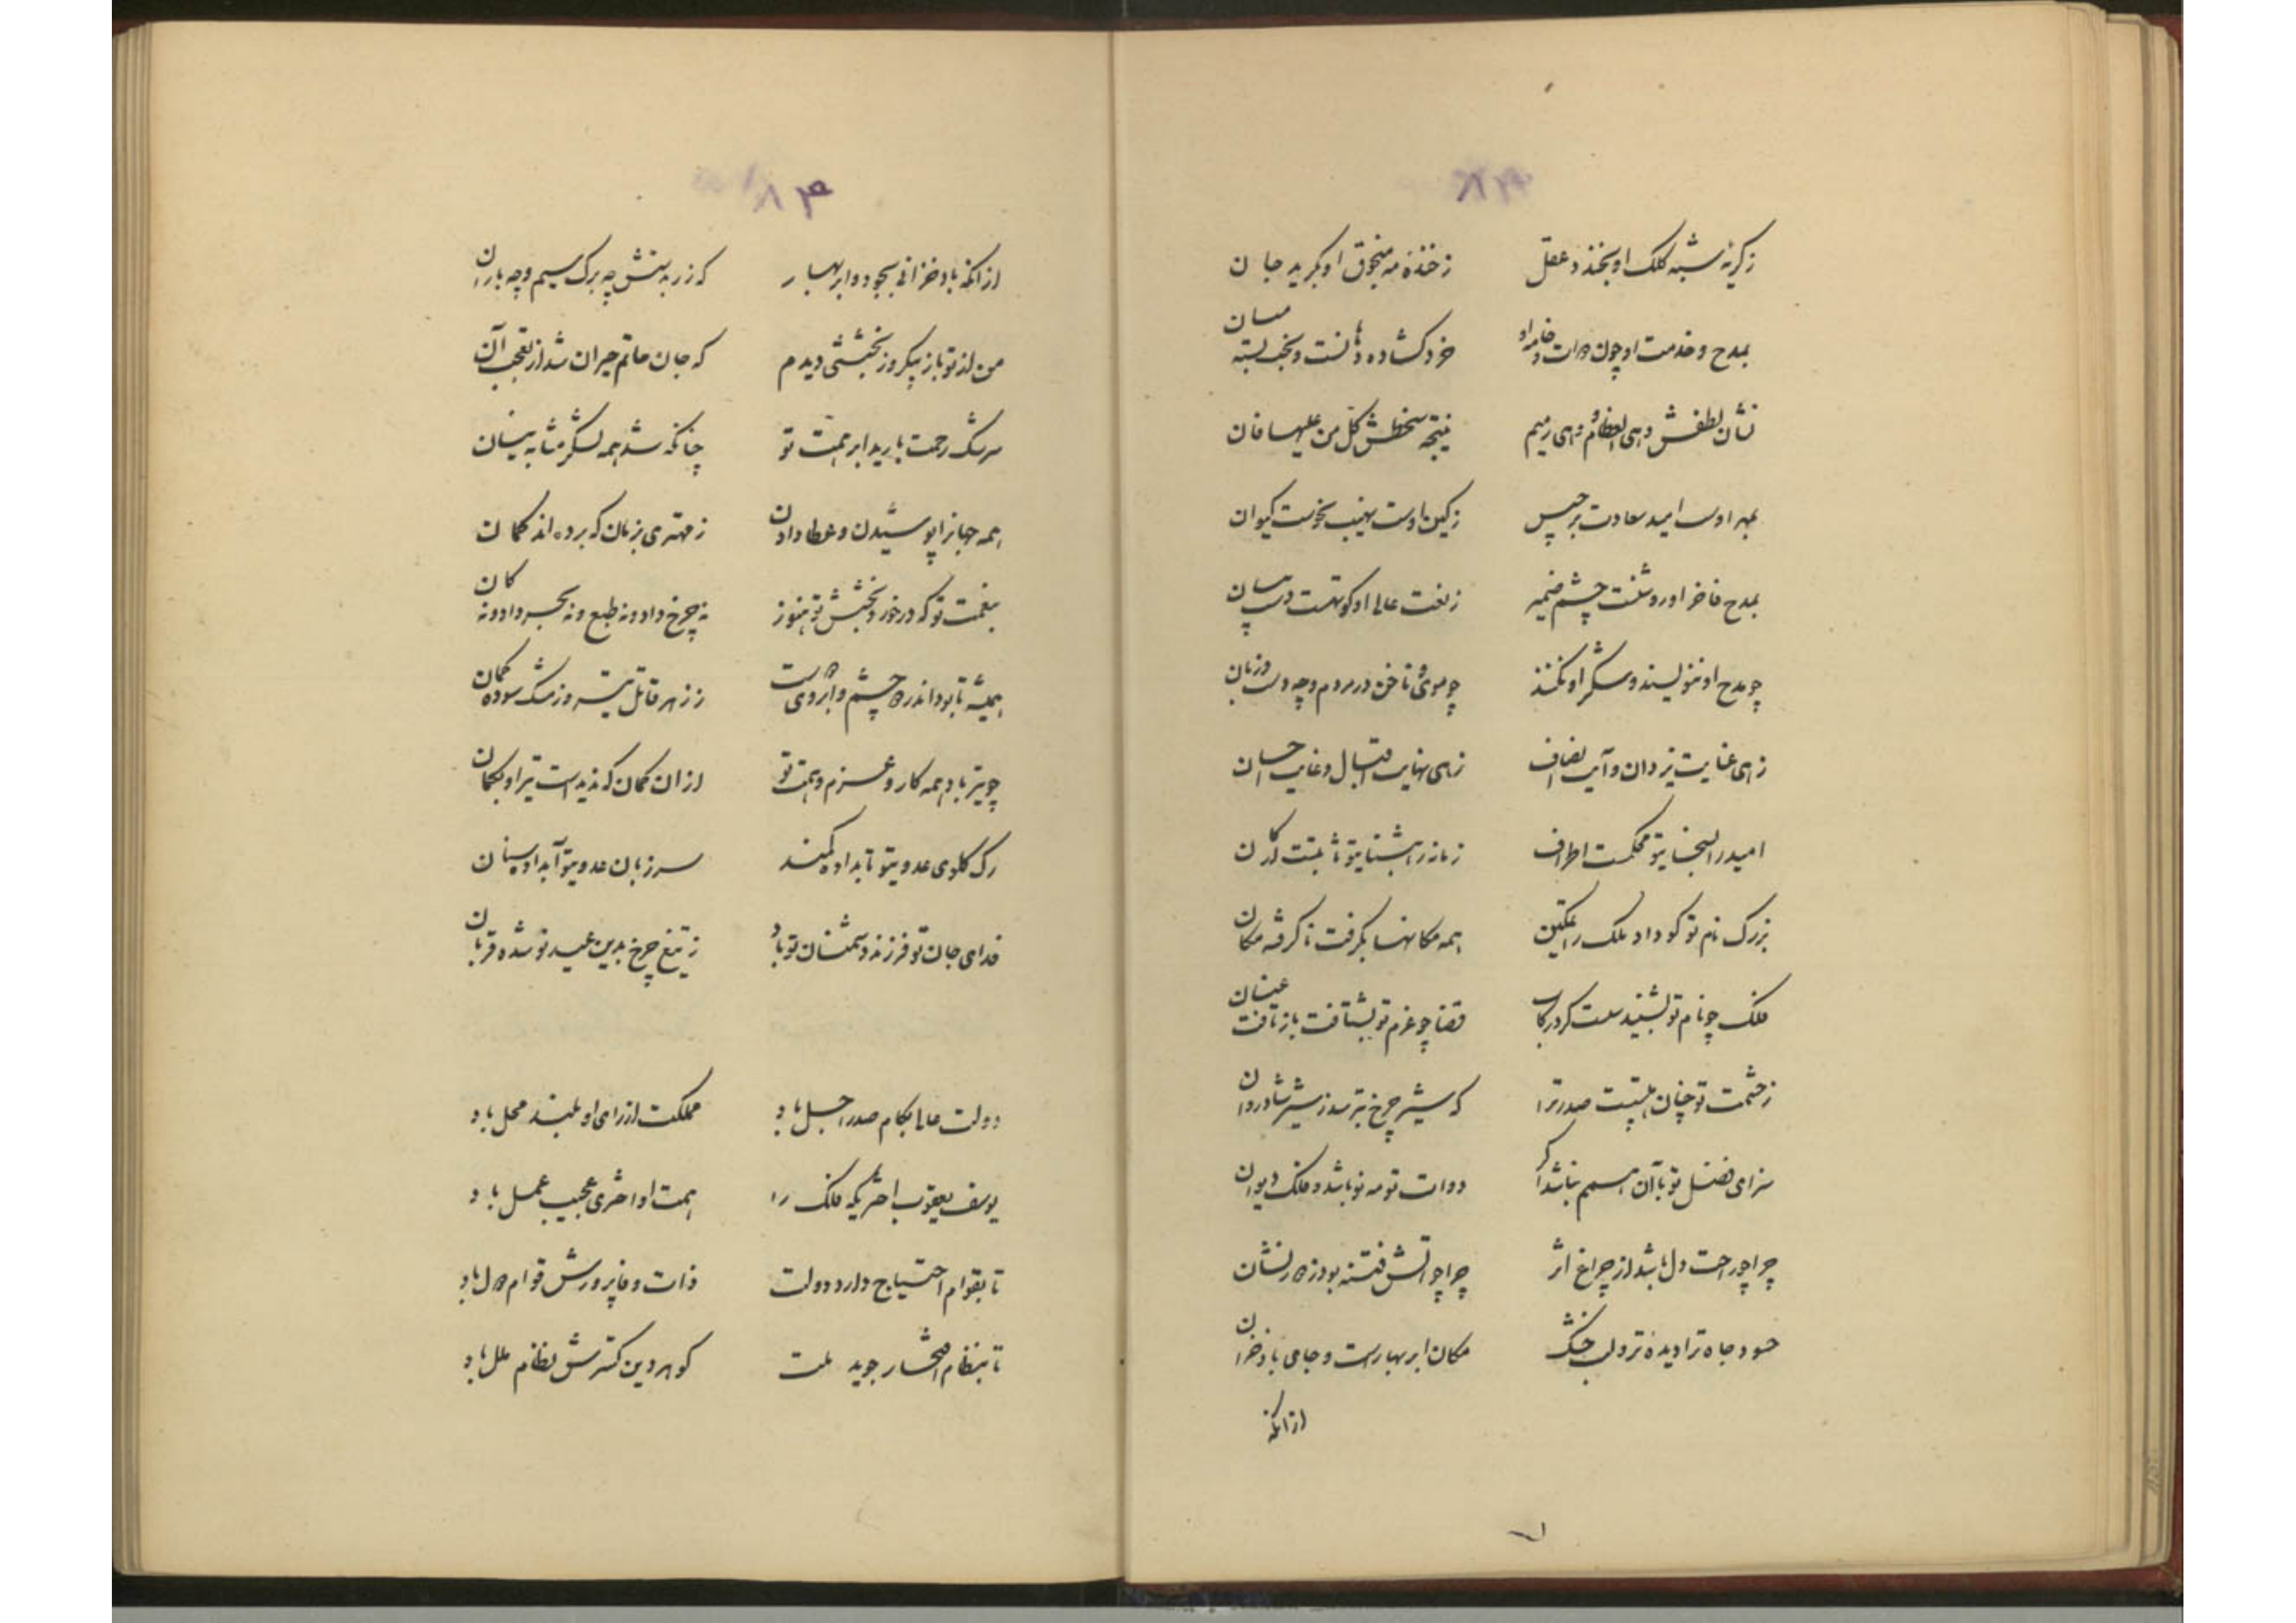 ۸۳
زگریه شبه کلک او بخندد عقل زخنده مه منجوق او بگرید جان
بمدح و خدمت او چون دوات و خامه او خرد گشاده دهانست و بخت بسته میان
نشان لطفش وهی العظام وهی رمیم نتیجه سخطش کل من علیها فان
بمهر اوست امید سعادت برجیس زکین اوست نهیب نحوست کیوان
بمدح فاخر او روشنست چشم ضمیر
چو مدح او ننویسند و شکر او نکنند چو موی و ناخن در مردم و چه دست و زبان
زهی عنایت یزدان و آیت انصاف زهی نهایت اقبال و غایت احسان
امید را بسخای تو محکمست اطراف زمانه را بثنای تو ثابتست ارکان
بزرگ نام تو کو داد ملک را تمکین همه مکانها بگرفت ناگرفته مکان
فلک چو نام تو بشنید سست کرد رکاب قضا چو عزم تو بشتافت باز تافت عنان
زحشمت تو چنان هیبتست صدر ترا که شیر چرخ بترسد ز شیر شادروان
سزای فضل تو با آن هم نباشد اگر دوات تو مه نو باشد و فلک دیوان
چرا چو راحت دل باشد از چراغ اثر چرا چو آتش فتنه بود زهر نشان
حسود جاه ترا دیده تر و لب خشک مکان ابر بهارست و جای باد خزان
از انکه
۸۴
از انکه باد خزانی بجود و ابر بهار که زر بدستش چه برگ سیم و چه باران
من از تو باز بیکروز بخششی دیدم که جان حاتم حیران شد از تعجب آن
سرشک رحمت بارید ابر همت تو چنانکه شد همه لشکر مثابه نیسان
همه جهانرا پوشیدن و عطا دادن ز مهتری بزمان که برده اند گمان
بنعمت تو که در خورد بخشش تو هنوز نه چرخ داد و نه طبع و نه بحر داد و نه کان
همیشه تا بود اندر چشم و ابروی ز زهر قاتل تیر و ز مشک سوده کمان
چو تیر باد همه کار و عزم و همت تو از ان کمان که ندیدست تیر او بکمان
رگ گلوی عدوی تو تابداده کمند سر زبان عدوی تو آبداده سنان
فدای جان تو فرزند و دشمنان تو باد ز تیغ چرخ بدین عید نو شده قربان
دولت عالی بکام صدر اجل باد مملکت از رای او بلند محل باد
یوسف یعقوب احمد آنکه فلک را همت او اختری عجیب عمل باد
تا بقوام احتیاج دارد دولت ذات وفاپرورش قوام دول باد
تا بنظام افتخار جوید ملت گوهر دین گسترش نظام ملل باد